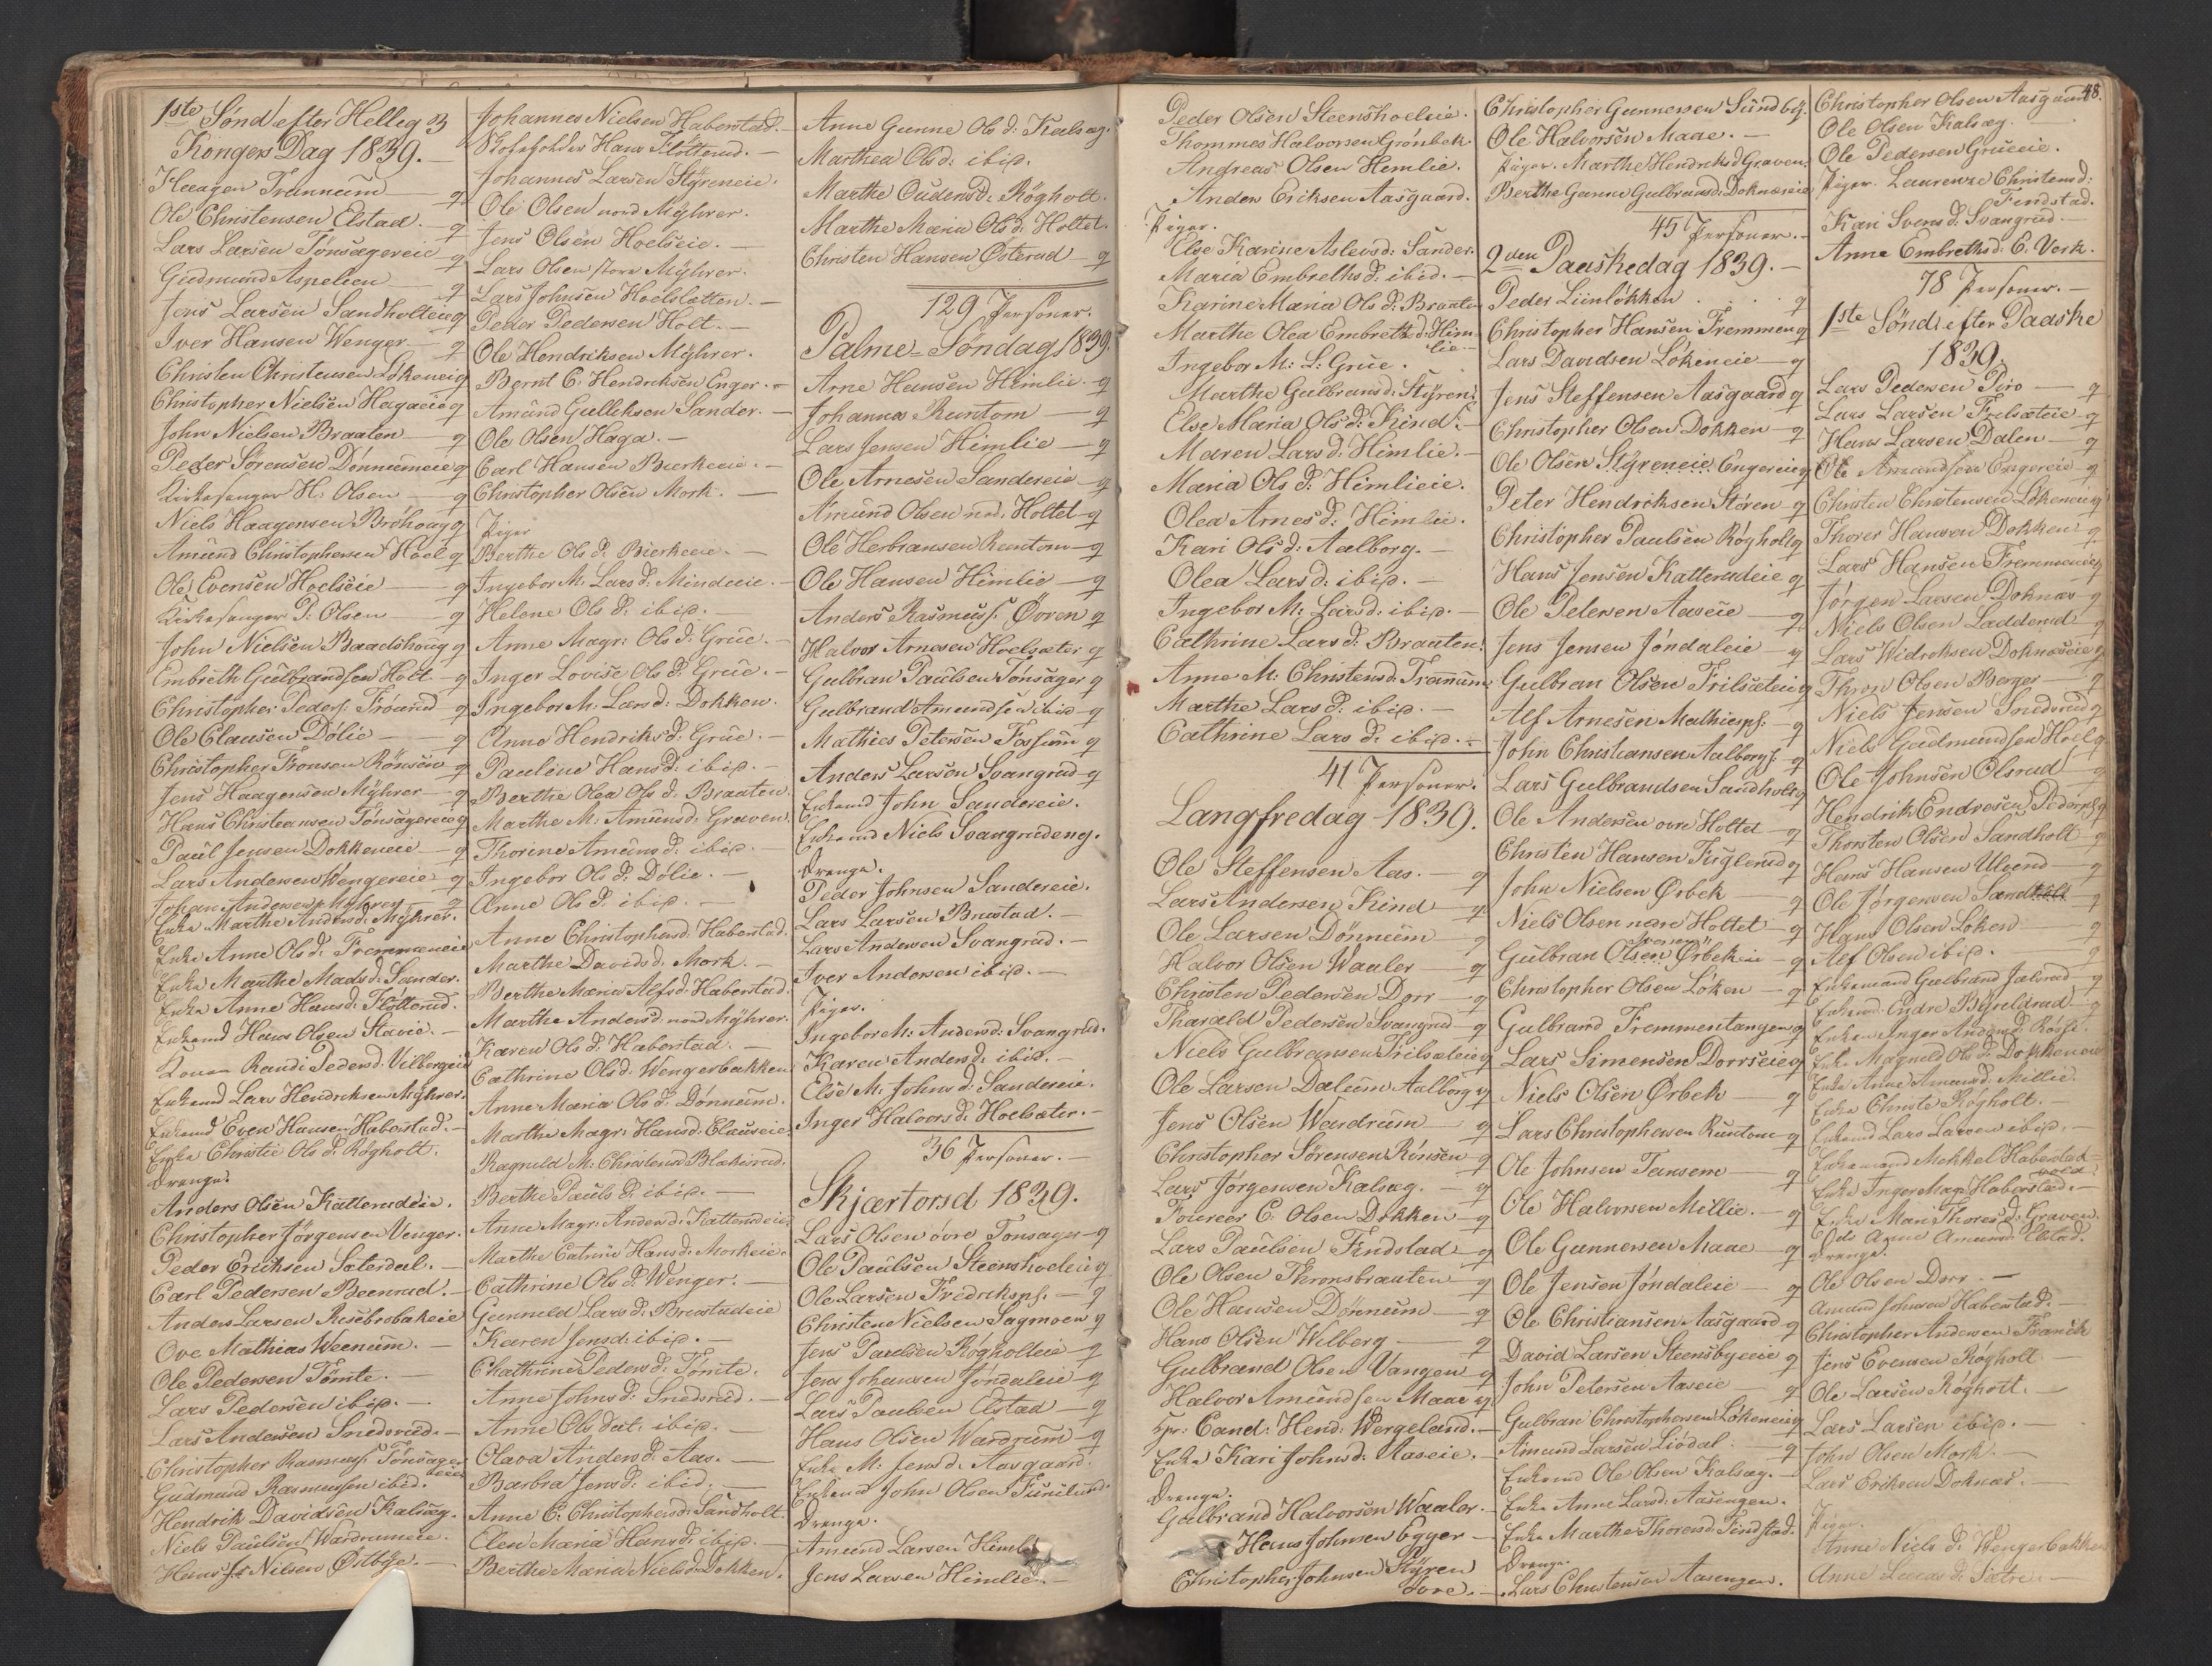 1ste Sönd. efter Hellig 3
Kongers Dag 1839. —
Haagen Trannum — q
Ole Christensen Elstad. — q
Lars Larsen Tönsagereie q
Gudmund Aspelien — q
Jens Larsen Sandholteie q
Iver Hansen Wenger — q
Christen Christensen Lökeneie q
Christopher Nielsen Hagaeie q
John Nielsen Braaten — q
Peder Sörensen Dönnumeie q
Kirkesanger H. Olsen — q
Niels Haagensen Bröhoug q
Amund Christophersen Hoel q
Ole Evensen Hoelseie — q
Kirkesanger P. Olsen — q
John Nielsen Baadshoug q
Embreth Gulbrandsen Holt — q
Christopher Peders. Fröund — q
Ole Clausen Dölie — q
Christopher Tronsen Rönsen q
Jens Haagensen Myhrer — q
Hans Christiansen Tönsagereie q
Paul Jensen Dokkeneie — q
Lars Andersen Wengereie q
Johan Andersen Myhrer — q
Enke Marthe Andersd. Myhrer.
Enke Anne Ols d. Fremmeneie
Enke Marthe Madsd. Sander.
Enke Anne Hansd. Flötterud.
Enkemd Hans Olsen Stavie. —
Konen Randi Pedersd. Vilbergeie
Enkemd Lars Hendriksen Myhrer.
Enkemd Even Hansen Haberstad. —
Enke Christie Ols d. Rögholt.
Drenge.
Anders Olsen Katterudeie.
Christopher Jörgensen Venger.
Peder Eriksen Sæterdal. —
Carl Pedersen Beenrud. —
Anders Larsen Risebrobakeie
Ove Mathias Weenum. —
Ole Pedersen Tömte. —
Lars Pedersen ibid. —
Lars Andersen Snedsrud. —
Christopher Rasmuss. Tönsager
eie
Gudmund Rasmussen ibid.
Hendrik Davidsen Kalsæg.
Niels Paulsen Wardrumeie.
Hans Nilsen Östbye. —
Johannes Nielsen Haberstad. —
Skoleholder Hans Flötterud. —
Johannes Larsen Styreneie.
Ole Olsen nord Myhrer.
Jens Olsen Hoelseie. —
Lars Olsen store Myhrer.
Lars Johnsen Hoelsletten. —
Peder Pedersen Holt. —
Ole Hendriksen Myhrer.
Bernt C. Hendriksen Enger. —
Amund Gulleksen Sander. —
Ole Olsen Haga. —
Carl Hansen Bierkeeie. —
Christopher Olsen Mork. —
Piger
Berthe Ols d. Bierkeeie. —
Ingebor M. Lars d. Mindeeie. —
Helene Ols d. ibid. —
Anne Magr. Ols d. Grüe. —
Inger Lovise Ols d. Grüe. —
Ingebor M. Lars d. Dokken.
Anne Hendriks d. Grüe. —
Pauline Hans d. ibid. —
Berthe Olea Ols d. Braaten.
Marthe M. Amunsd. Graven.
Thorine Amunsd. ibid. —
Ingebor Ols d. Dölie. —
Anne Ols d. ibid. —
Anne Christophersd. Haberstad.
Marthe Davidsd. Mork. —
Berthe Maria Alfsd. Haberstad.
Marthe Andersd. nord Myhrer.
Karen Ols d. Haberstad. —
Cathrine Olsd. Wengerbakken
Anne Maria Ols d. Dönnum.
Marthe Magr. Hansd. Clauseie.
Ragnild M. Christensd. Blakerud.
Berthe Pauls d. ibid. —
Anne Magr. Andersd. Katterudeie
Marthe Catrine Hansd. Morkeie.
Cathrine Ols d. Wenger. —
Gunnild Lars d. Brustadeie
Karen Jensd. ibid. —
Chathrine Peders d. Tömte.
Anne Johns d. Snedsrud. —
Anne Ols dat. ibid. —
Olava Anders d. Aas. —
Barbra Jens d. ibid. —
Anne C. Christophersd. Sandholt.
Elen Maria Hans d. ibid. —
Berthe Maria Niels d. Dokken.
Anne Gunne Ols d. Kalsæg.
Marthea Ols d. ibid.
Marthe Oudensd. Rögholt.
Marthe Maria Ols d. Holtet.
Christen Hansen Österud — q
129 Personer.
Palme-Söndag 1839.
Arne Hansen Himlie. — q
Johannes Runtom — q
Lars Jensen Himlie — q
Ole Arnesen Sandereie — q
Amund Olsen ned. Holtet — q
Ole Herbransen Runtom — q
Ole Hansen Himlie — q
Anders Rasmuss. Övren q
Halvor Arnesen Hoelsæter q
Gulbran Paulsen Tönsager q
Gulbrand Amundsen ibid q
Mathies Petersen Fossum q
Anders Larsen Svangrud q
Enkemd John Sandereie.
Enkemd Niels Svangrudeng.
Drenge.
Peder Johnsen Sandereie.
Lars Larsen Brustad. —
Lars Andersen Svangrud. —
Iver Andersen ibid. —
Piger.
Ingebor M. Andersd. Svangrud.
Karen Anders d. ibid. —
Else M. Johns d. Sandereie.
Inger Halvorsd. Hoelsæter. —
36 Personer. —
Skjærtorsd 1839.
Lars Olsen övre Tonsager q
Ole Paulsen Steenshoeleie q
Ole Larsen Fredrikspl. — q
Christen Nielsen Sagmoen q
Jens Paulsen Rögholteie q
Jens Johansen Jöndaleie q
Lars Paulsen Elstad — q
Hans Olsen Wardrum — q
Enke M. Jens d. Aasgaard.
Enkemd John Olsen Furulund.
Drenge.
Amund Larsen Himlie
Jens Larsen Himlie. —
48.
Peder Olsen Steenshoeleie.
Thommes Halvorsen Grönbek.
Andreas Olsen Hemlie.
Anders Eriksen Aasgaard.
Piger.
Else Karine Aslevsd. Sander.
Maria Embreths d. ibid. —
Karine Maria Ols d. Braaten
Marthe Olea Embreth d. Him-
lie. —
Ingebor M. L. Grüe.
Marthe Gulbransd. Styren.
Else Maria Ols d. Kind. —
Maren Lars d. Himlie. —
Maria Ols d. Himlieie.
Olea Arnes d. Himlie.
Kari Ols d. Aalborg. —
Olea Lars d. ibid. —
Ingebor M. Lars d. ibid. —
Cathrine Lars d. Braaten.
Anne M. Christensd. Trannum.
Marthe Lars d. ibid. —
Cathrine Lars d. ibid. —
41 Personer.
Langfredag 1839.
Ole Steffensen Aas. — q
Lars Andersen Kind — q
Ole Larsen Dönnum — q
Halvor Olsen Waaler — q
Christen Pedersen Dorr — q
Tharald Pedersen Svangrud — q
Niels Gulbransen Frilsæteie q
Ole Larsen Dalüm Aalborg q
Jens Olsen Wardrum — q
Christopher Sörensen Rönsen q
Lars Jörgensen Kalsæg. — q
Foureer C. Olsen Dokken q
Lars Paulsen Findstad q
Ole Olsen Thronsbraaten q
Ole Hansen Dönnum — q
Hans Olsen Wilberg — q
Gulbrand Olsen Vangen q
Halvor Amundsen Maae q
Hr: Cand: Hend: Wergeland. —
Enke Kari Johns d. Aaseie. —
Drenge.
Gulbrand Halvorsen Waaler. —
Hans Johnsen Egger —
Christopher Johnsen Styren
Christopher Gunnersen Sundby.
Ole Halvorsen Maae. —
Piger. Marthe Hendriksd Graven.
Berthe Gunne Gulbransd. Doknæseie
45 Personer. —
2den Paaskedag 1839. —
Peder Liinlökken . . . q
Christopher Hansen Fremmen q
Lars Davidsen Lökeneie — q
Jens Steffensen Aasgaard q
Christopher Olsen Dokken — q
Ole Olsen Styreneie Engereie q
Peter Hendriksen Stören — q
Christopher Paulsen Rögholt q
Hans Jensen Katterudeie q
Ole Petersen Aaseie — q
Jens Jensen Jöndaleie q
Gulbran Olsen Frilsæteie q
Alf Arnesen Mathiespl. — q
John Christiansen Aalborgs. q
Lars Gulbrandsen Sandholt q
Ole Andersen övre Holtet — q
Christen Hansen Fuglerud q
John Nielsen Örbek — q
Niels Olsen nedre Holtet — q
Gulbran Olsen Örbekeie — q
Christopher Olsen Löken — q
Gulbrand Fremmentangen q
Lars Simensen Dorrseie q
Niels Olsen Örbek — q
Lars Christophersen Runtom q
Ole Johnsen Tansem — q
Ole Halvorsen Millie. — q
Ole Gunnersen Maae — q
Ole Jensen Jöndaleie — q
Ole Christiansen Aasgaard q
David Larsen Steensbyeie q
John Petersen Aaseie — q
Gulbran Christophersen Lökeneie q
Amund Larsen Liödal — q
Enkemd Ole Olsen Kalsæg. —
Enke Anne Larsd. Aasengen.
Enke Marthe Thoresd. Findstad.
Drenge.
Lars Christensen Aasengen.
Christopher Olsen Aasgaard
Ole Olsen Kalsæg.
Ole Pedersen Grüeeie.
Piger. Laurenze Christensd.
Findstad.
Kari Svens d. Svangrud. —
Anne Embrethsd. E. Verk.
78 Personer. —
1ste Sönd. efter Paaske
1839.
Lars Pedersen Piro — q
Lars Larsen Frilsæteie q
Hans Larsen Dalen — q
Ole Amundsen Engereie q
Christen Christensen Lökeneie q
Thorer Hansen Dokken q
Lars Hansen Fremmeneie q
Jörgen Larsen Doknæs q
Niels Olsen Ladderud — q
Lars Widriksen Doknæseie q
Thron Olsen Berger — q
Niels Jensen Snedsrud q
Niels Gudmundsen Hoel q
Ole Johnsen Olsrud q
Hendrik Endresen Pederspl. q
Thorsten Olsen Sandholt — q
Hans Hansen Ulvend — q
Ole Jörgensen Sandholt — q
Hans Olsen Löken — q
Alf Olsen ibid. — q
Enkemand Gulbrand Jalsrud — q
Enkemd. Endre q
Enke Inger Andersd.
Enke Magnild Ols d. Dokkeneie
Enke Anne Amunsd. Millie.
Enke Christie Rögholt. —
Enkemd Lars Larsen ibid. —
Enkemand Mekkel Haberstad
Enke Inger Magr. Haberstad. —
Enke Mari Thores d. Graven.
Amund Elstad.
Drenge.
Ole Olsen Dorr. —
Amund Johnsen Haberstad. —
Christopher Andersen Franeik
Jens Evensen Rögholt
Ole Larsen Rögholt. —
Lars Larsen ibid. —
John Olsen Mork. —
Lars Eriksen Doknæs. —
Piger.
Anne Niels d. Wengerbakken
Anne Lucas d. Sætre. —